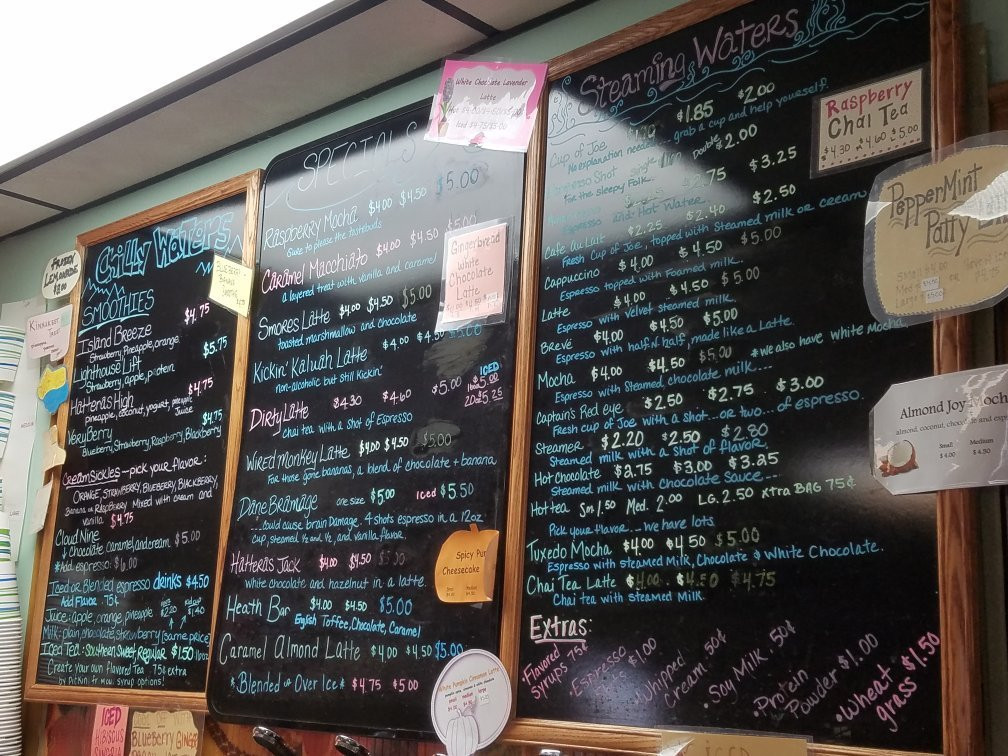 Frozen
Lemonade
Chilly Waters
SMOOTHIES
Island Breeze $4.75
Strawberry, Pineapple, orange
Lighthouse Lift $5.75
Strawberry, apple, protein
Hatteras High $4.75
pineapple, coconut, yogurt, pineapple Juice
Very Berry $4.75
Blueberry, Strawberry, Raspberry, Blackberry
CreamSickles - pick your flavor:
ORANGE, STRAWBERRY, BLUEBERRY, BLACKBERRY,
BANANA or RASPBERRY Mixed with cream and
vanilla $4.75
Cloud Nine $5.00
Chocolate, caramel, and cream
*Add espresso: $6.00
Iced or Blended espresso drinks $4.50
Add Flavor 75¢
Juice: apple, orange, pineapple $2.20 $1.40
Milk: plain, chocolate, strawberry (same price)
Iced Tea: Southern Sweet Regular $1.50
Create your own flavored Tea 75¢ extra
by pickin fr. our syrup options!
ICED
HIBISCUS
BLUEBERRY GINGER
White Chocolate Lavender
Latte
Iced $4.75/$5.00
SPECIALS
Raspberry Mocha $4.00 $4.50 $5.00
Give to please the tastebuds
Caramel Macchiato $4.00 $4.50 $5.00
a layered treat with vanilla and caramel
Smores Latte $4.00 $4.50 $5.00
toasted marshmallow and chocolate
Kickin' Kaluah Latte $4.00 $4.50 $5.00
non-alcoholic but still Kickin'
Dirty Latte $4.30 $4.60 $5.00
chai tea with a Shot of Espresso
ICED
16oz $5.00
20oz $5.25
Wired Monkey Latte $4.00 $4.50 $5.00
For those gone bananas, a blend of chocolate + banana
Dane Bramage one size $5.00 Iced $5.50
...could cause brain Damage. 4 shots espresso in a 12oz
cup, steamed ½ and ½, and vanilla flavor.
Hatteras Jack $4.00 $4.50
White chocolate and hazelnut in a latte.
Heath Bar $4.00 $4.50 $5.00
English Toffee, Chocolate, Caramel
Caramel Almond Latte $4.00 $4.50 $5.00
*Blended or Over Ice* $4.75 $5.00
Gingerbread
White
Chocolate
Latte
Spicy
Cheesecake
White Pumpkin Cinnamon Latte
small medium large
Steaming Waters
Cup of Joe $1.85 $2.00
No explanation needed... grab a cup and help yourself.
Espresso Shot single Double $2.00
for the sleepy Folk...
Espresso and Hot Water $3.25
Cafe Au Lait $2.25 $2.40 $2.50
Fresh Cup of Joe, topped with Steamed milk or cream
Cappuccino $4.00 $4.50 $5.00
Espresso topped with Foamed milk...
Latte $4.00 $4.50 $5.00
Espresso with velvet steamed milk...
Brevé $4.00 $4.50 $5.00
Espresso with half N half, made like a Latte.
Mocha $4.00 $4.50 $5.00 *we also have White Mocha
Espresso with Steamed chocolate milk....
Captain's Red eye $2.50 $2.75 $3.00
Fresh cup of Joe with a shot...or two... of espresso.
Steamer $2.20 $2.50 $2.80
Steamed milk with a shot of flavor
Hot Chocolate $2.75 $3.00 $3.25
Steamed milk with Chocolate Sauce....
Hot tea Sm 1.50 Med. 2.00 LG. 2.50 xtra BAG 75¢
Pick your flavor... we have lots.
Tuxedo Mocha $4.00 $4.50 $5.00
Espresso with steamed Milk, Chocolate & White Chocolate.
Chai Tea Latte $4.00 $4.50 $4.75
Chai tea with Steamed Milk.
Extras:
Flavored
Syrups 75¢
Espresso $1.00
Whipped
Cream 50¢
•Soy Milk 50¢
•Protein
Powder $1.00
•Wheat
grass $1.50
Raspberry
Chai Tea
$4.30 $4.60 $5.00
PepperMint
Patty
Almond Joy Moch
almond, coconut, chocolate and esp
Small Medium
$4.00 $4.50
ICED